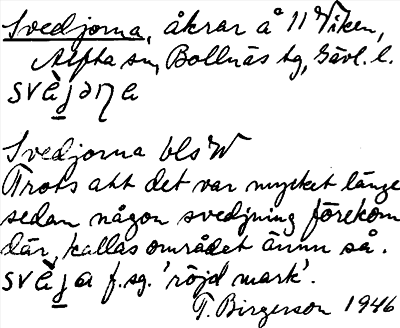 Svedjorna, åkrar å 11 Viken,
Alfta sn, Bollnäs tg, Gävl. l.
svɛ̀jɔṇa
Svedjorna bls W
Trots att det var mycket länge
sedan någon svedjning förekom
där, kallas området ännu så.
svɛ̀ja f. sg. 'röjd mark'.
T. Birgerson 1946